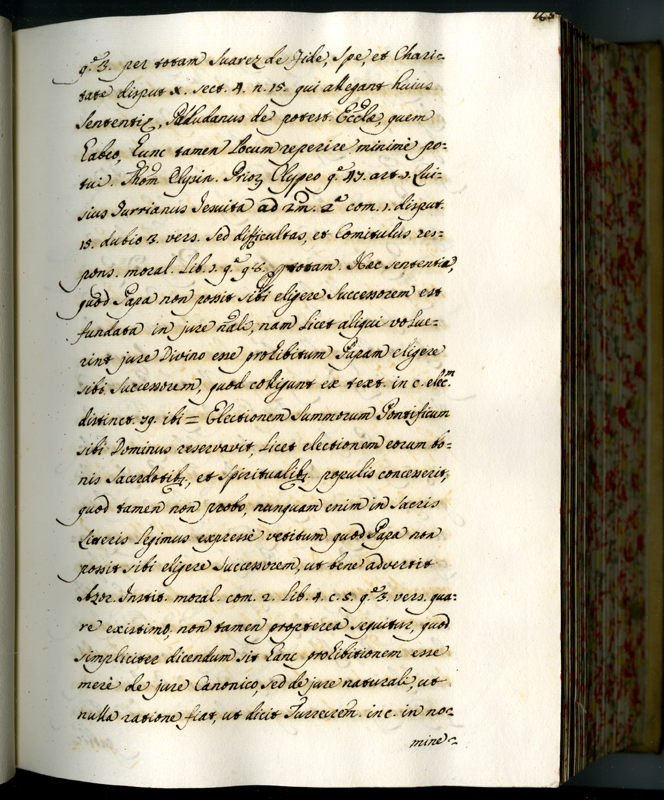 q.ᵉ 3. per totam Suarez de Fide, Spe, et Chari-
tate disput. X. sect. 4. n. 15. qui allegant huius
sententiæ, Paludanus de potest. Eccłæ, quem
habeo, hunc tamen locum reperire minimè po-
tui. Thom. Elysin. Prior Clypeo q.ᵉ 47. art. 1. Lui-
sius Turrianus Jesuita ad 2m. 2.ᵉ tom. 1. disput.
15. dubio 3. vers. sed difficultas, et Comitulus res-
pons. moral. lib. 1. q.ᵉ totam. Hæc sententia,
quòd Papa non possit sibi eligere Successorem est
fundata in jure nãli, nam licet aliqui volue-
rint jure Divino esse prohibitum Papam eligere
sibi Successorem, quod colligunt ex text. in c. elec.m
distinct. 79. ibi = Electionem Summorum Pontificum
sibi Dominus reservavit, licet electionem eorum bo-
nis Sacerdotibz, et Spiritualibz populis concesserit,
quod tamen non probo, nunquam enim in Sacris
Litteris legimus expressè vetitum quòd Papa non
possit sibi eligere Successorem, ut benè advertit
Azor. Instit. moral. tom. 2. lib. 4. c. 5. q.ᵉ 3. vers. qua-
re existimo, non tamen propterea sequitur, quod
simpliciter dicendum sit hanc prohibitionem esse
merè de jure Canonico, sed de jure naturali, ut
nulla ratione fiat, ut dicit Turrecrem. in c. in no-
mine